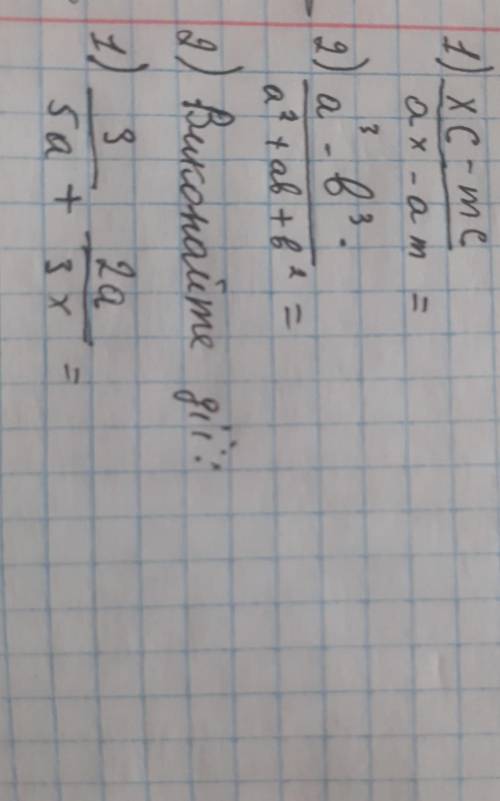 1) xc - mc
ax - am =
2) a³ - b³.
a² + ab + b² =
2) Виконайте дії:
1) 3 2a
5a + 3x =